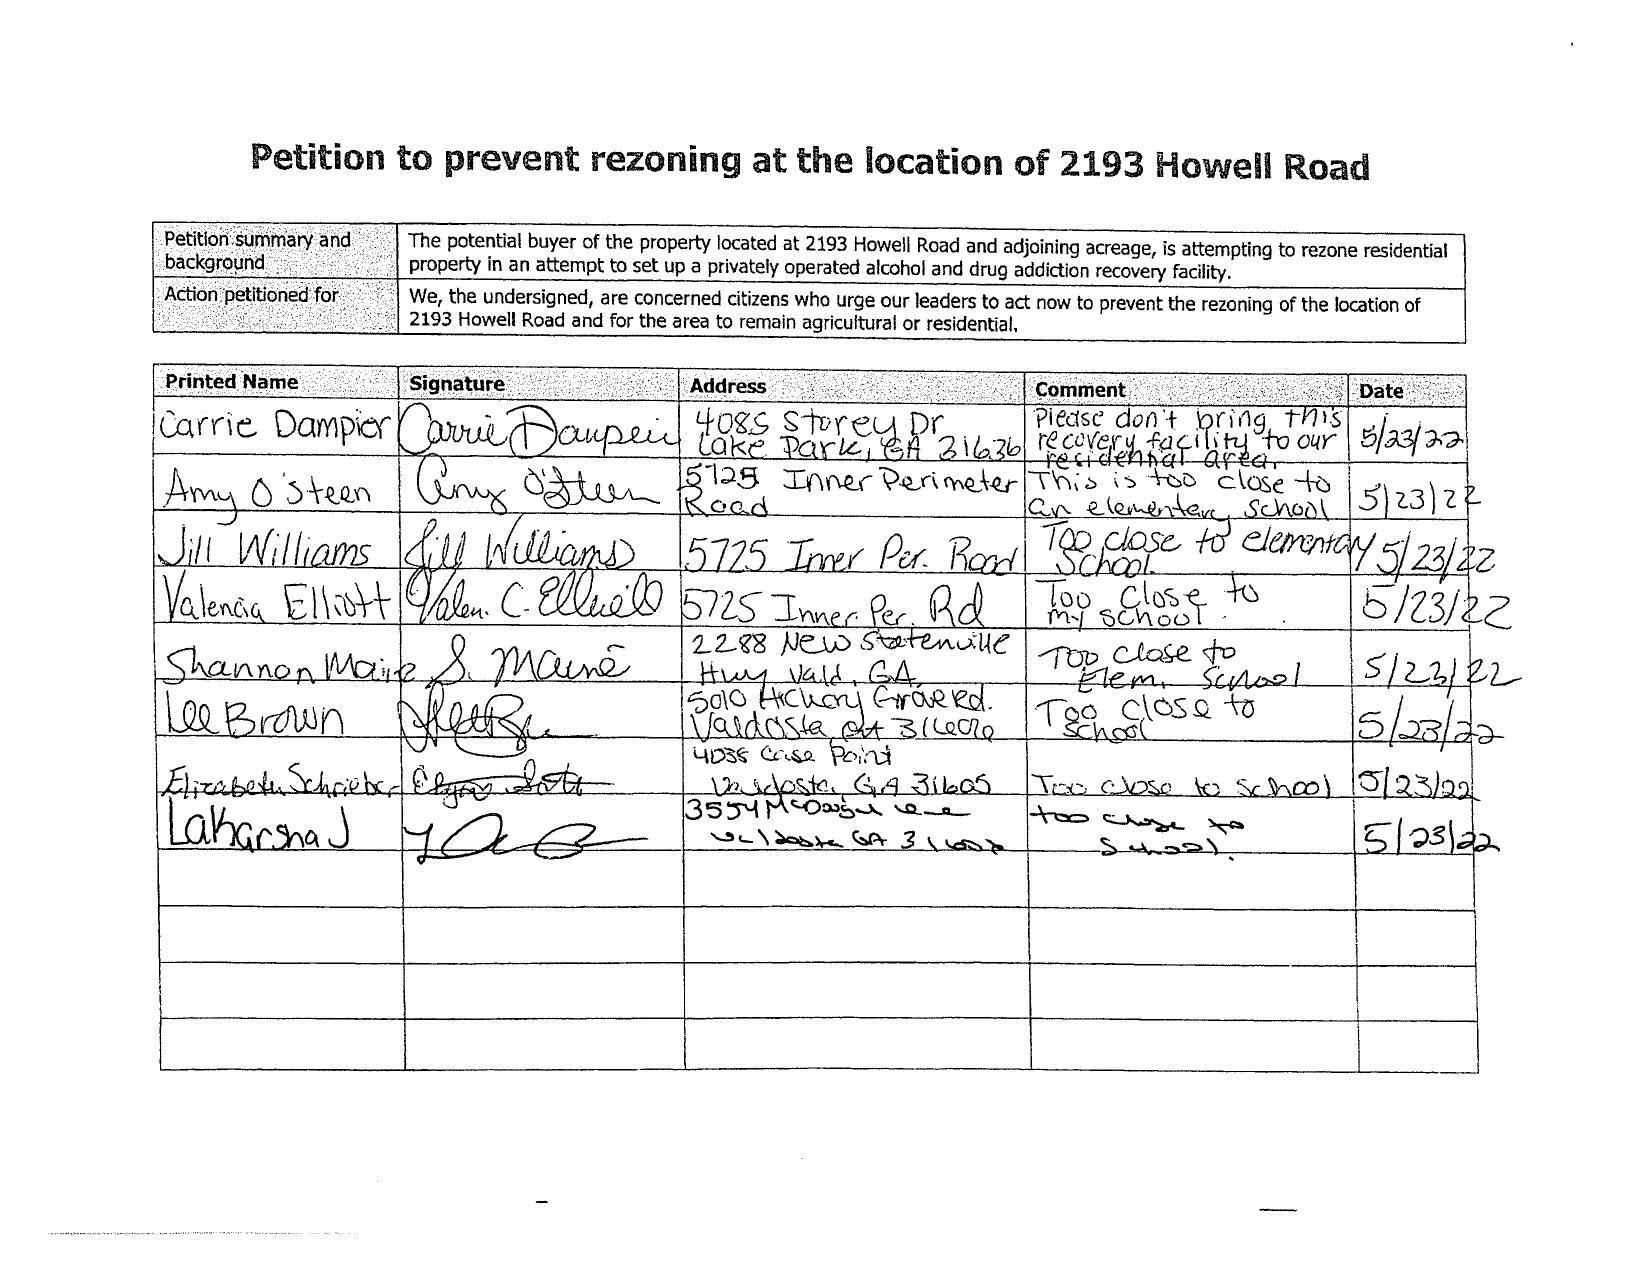 Petition to prevent rezoning at the location of 2193 Howell Road
Petition summary and background
The potential buyer of the property located at 2193 Howell Road and adjoining acreage, is attempting to rezone residential
property in an attempt to set up a privately operated alcohol and drug addiction recovery facility.
Action petitioned for
We, the undersigned, are concerned citizens who urge our leaders to act now to prevent the rezoning of the location of
2193 Howell Road and for the area to remain agricultural or residential.
Printed Name Signature Address Comment Date
Carrie Dampier Carrie Dampier 4085 Storey Dr
Lake Park, GA 31636
Please don't bring this
recovery facility to our
residential area.
5/23/22
Amy O'Steen Amy O'Steen 5725 Inner Perimeter
Road
This is too close to
an elementary school
5/23/22
Jill Williams Jill Williams 5725 Inner Per. Road
Too close to elementary
School.
5/23/22
Valencia Elliott Valen. C. Elliott 5725 Inner Per. Rd
Too close to
my school.
5/23/22
Shannon Maine S. Maine
2288 New Statenville
Hwy Vald. GA.
Too close to
Elem. School
5/23/22
Lee Brown
5010 Hickory Grove Rd.
Valdosta, GA 31606
Too close to
school
5/23/22
Elizabeth Schrieber
4035 Case Point
Valdosta, GA 31605
Too close to school 5/23/22
Laharsha J
3554
Valdosta GA
too close to
School.
5/23/22